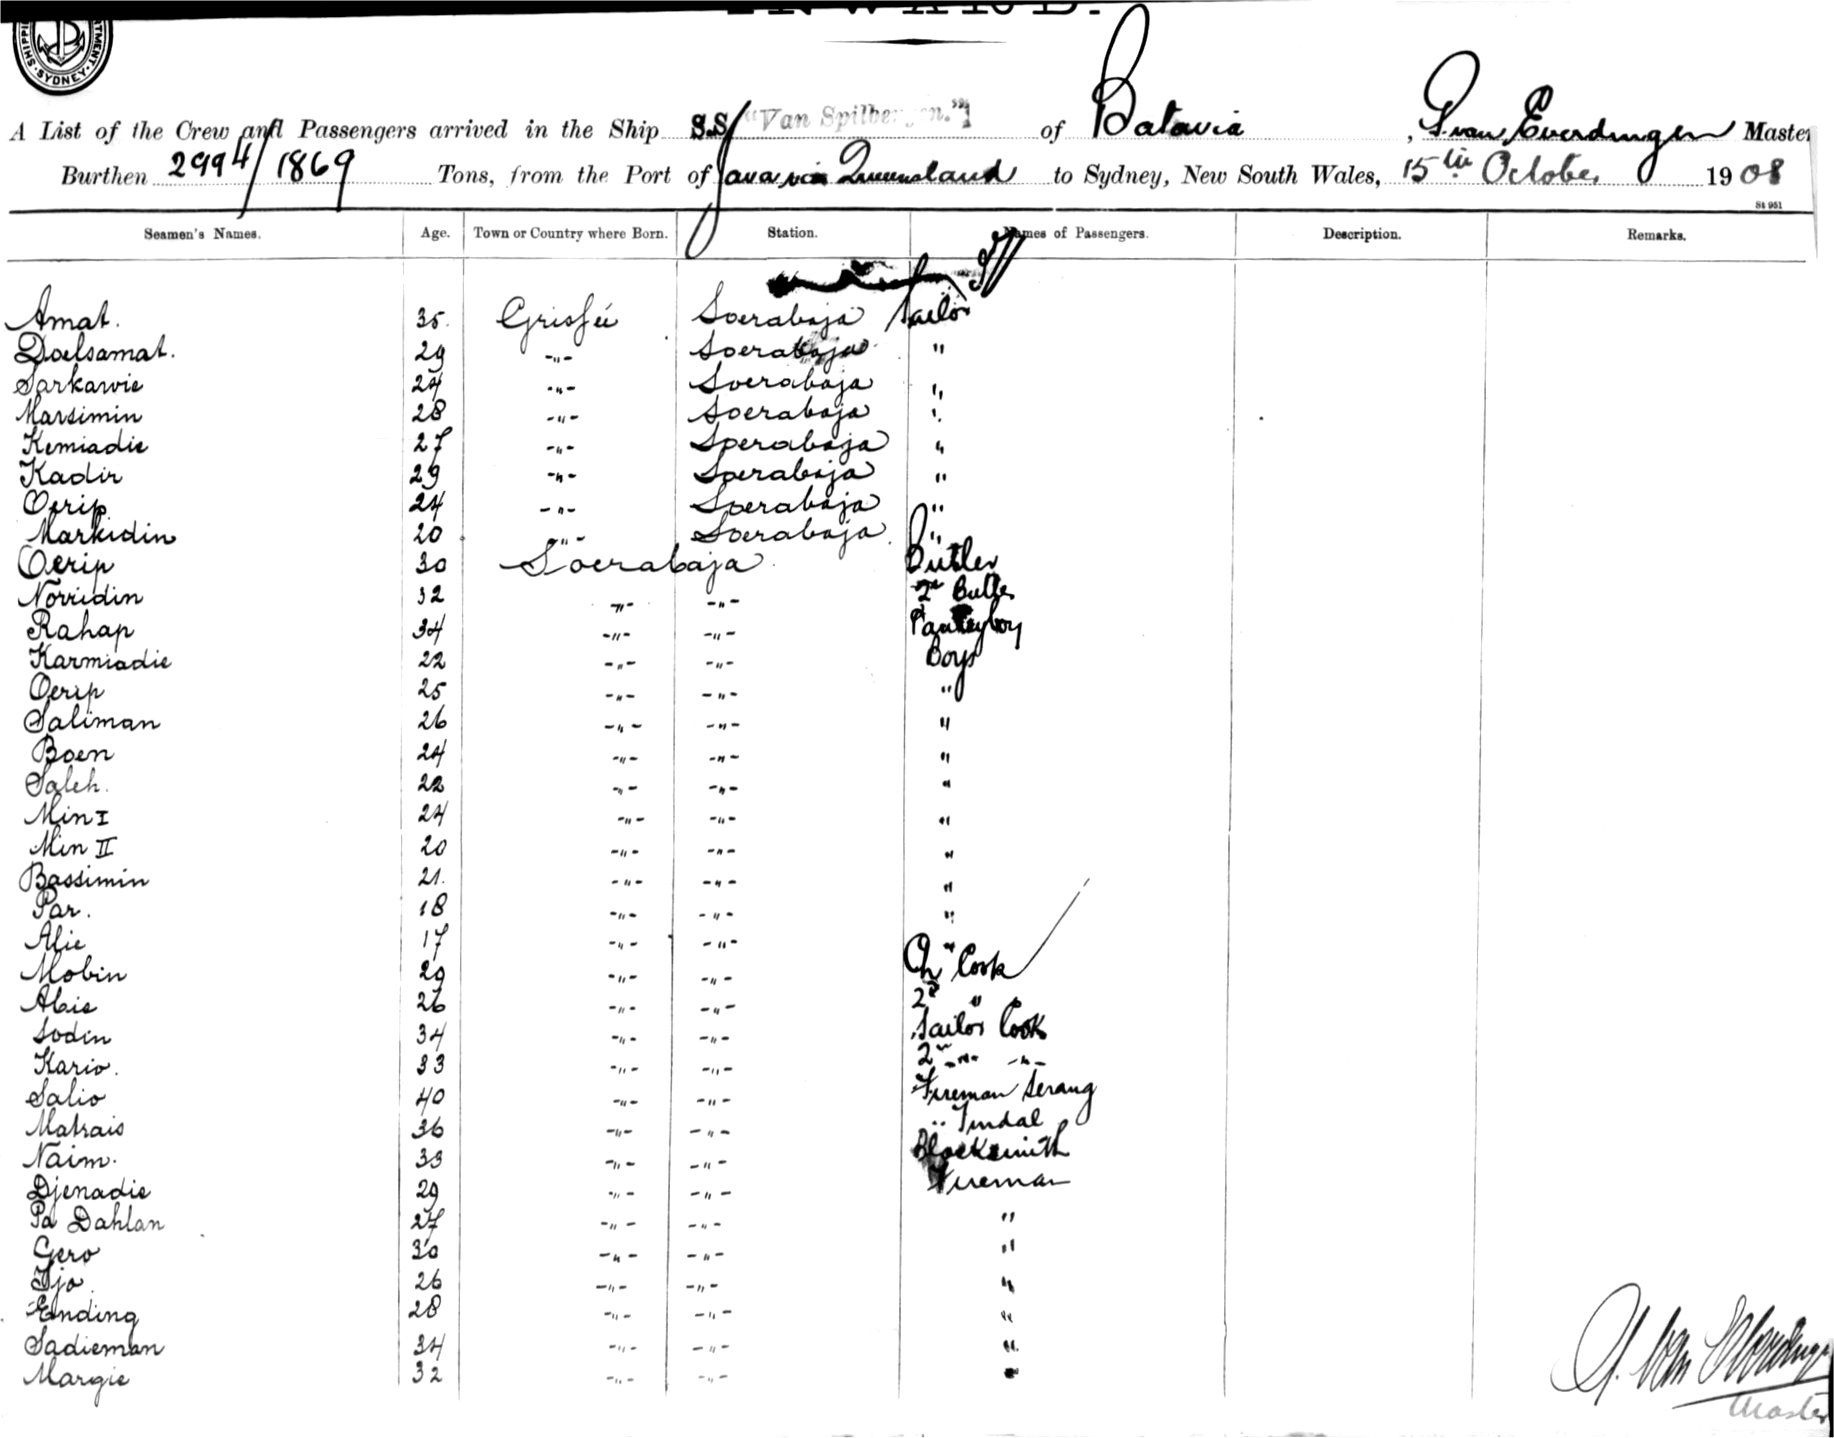 INWARD.
SHIPPI TMENT. SYDNEY
A List of the Crew and Passengers arrived in the Ship S.S. "Van Spilbergen." of Batavia, P. van Everdingen Master
Burthen 2994/1869 Tons, from the Port of Java via Queensland to Sydney, New South Wales, 15th October 1908
St 951
Seamen's Names. Age. Town or Country where Born. Station. Names of Passengers. Description. Remarks.
Amat. 35. Soerabaja Sailor
Doelsamat. 29 -"- Soerabaja "
Sarkawie 24 -"- Soerabaja "
Marsimin 28 -"- Soerabaja "
Kemiadie 27 -"- Soerabaja "
Kadir 29 -"- Soerabaja "
Oerip 24 -"- Soerabaja "
Markidin 20 -"- Soerabaja "
Oerip 30 Soerabaja Butler
Norridin 32 -"- -"- 2nd Butler
Rahap 34 -"- -"- Pantryboy
Karmiadie 22 -"- -"- Boys
Oerip 25 -"- -"- "
Saliman 26 -"- -"- "
Boen 24 -"- -"- "
Saleh. 22 -"- -"- "
Min I 24 -"- -"- "
Min II 20 -"- -"- "
Bassimin 21. -"- -"- "
Par. 18 -"- -"- "
Alie 17 -"- -"- "
Mobin 29 -"- -"- Ch Cook
Abie 26 -"- -"- 2nd "
Sodin 34 -"- -"- Sailor Cook
Kario. 33 -"- -"- 2nd -"- -"-
Salio 40 -"- -"- Fireman Serang
Matrais 36 -"- -"- " Tindal
Naim. 33 -"- -"- Blacksmith
Djenadie 29 -"- -"- Fireman
Pa Dahlan 27 -"- -"- "
Gero 30 -"- -"- "
26 -"- -"- "
Ending 28 -"- -"- "
Sadieman 34 -"- -"- "
Margie 32 -"- -"- "
van Everdingen
Master